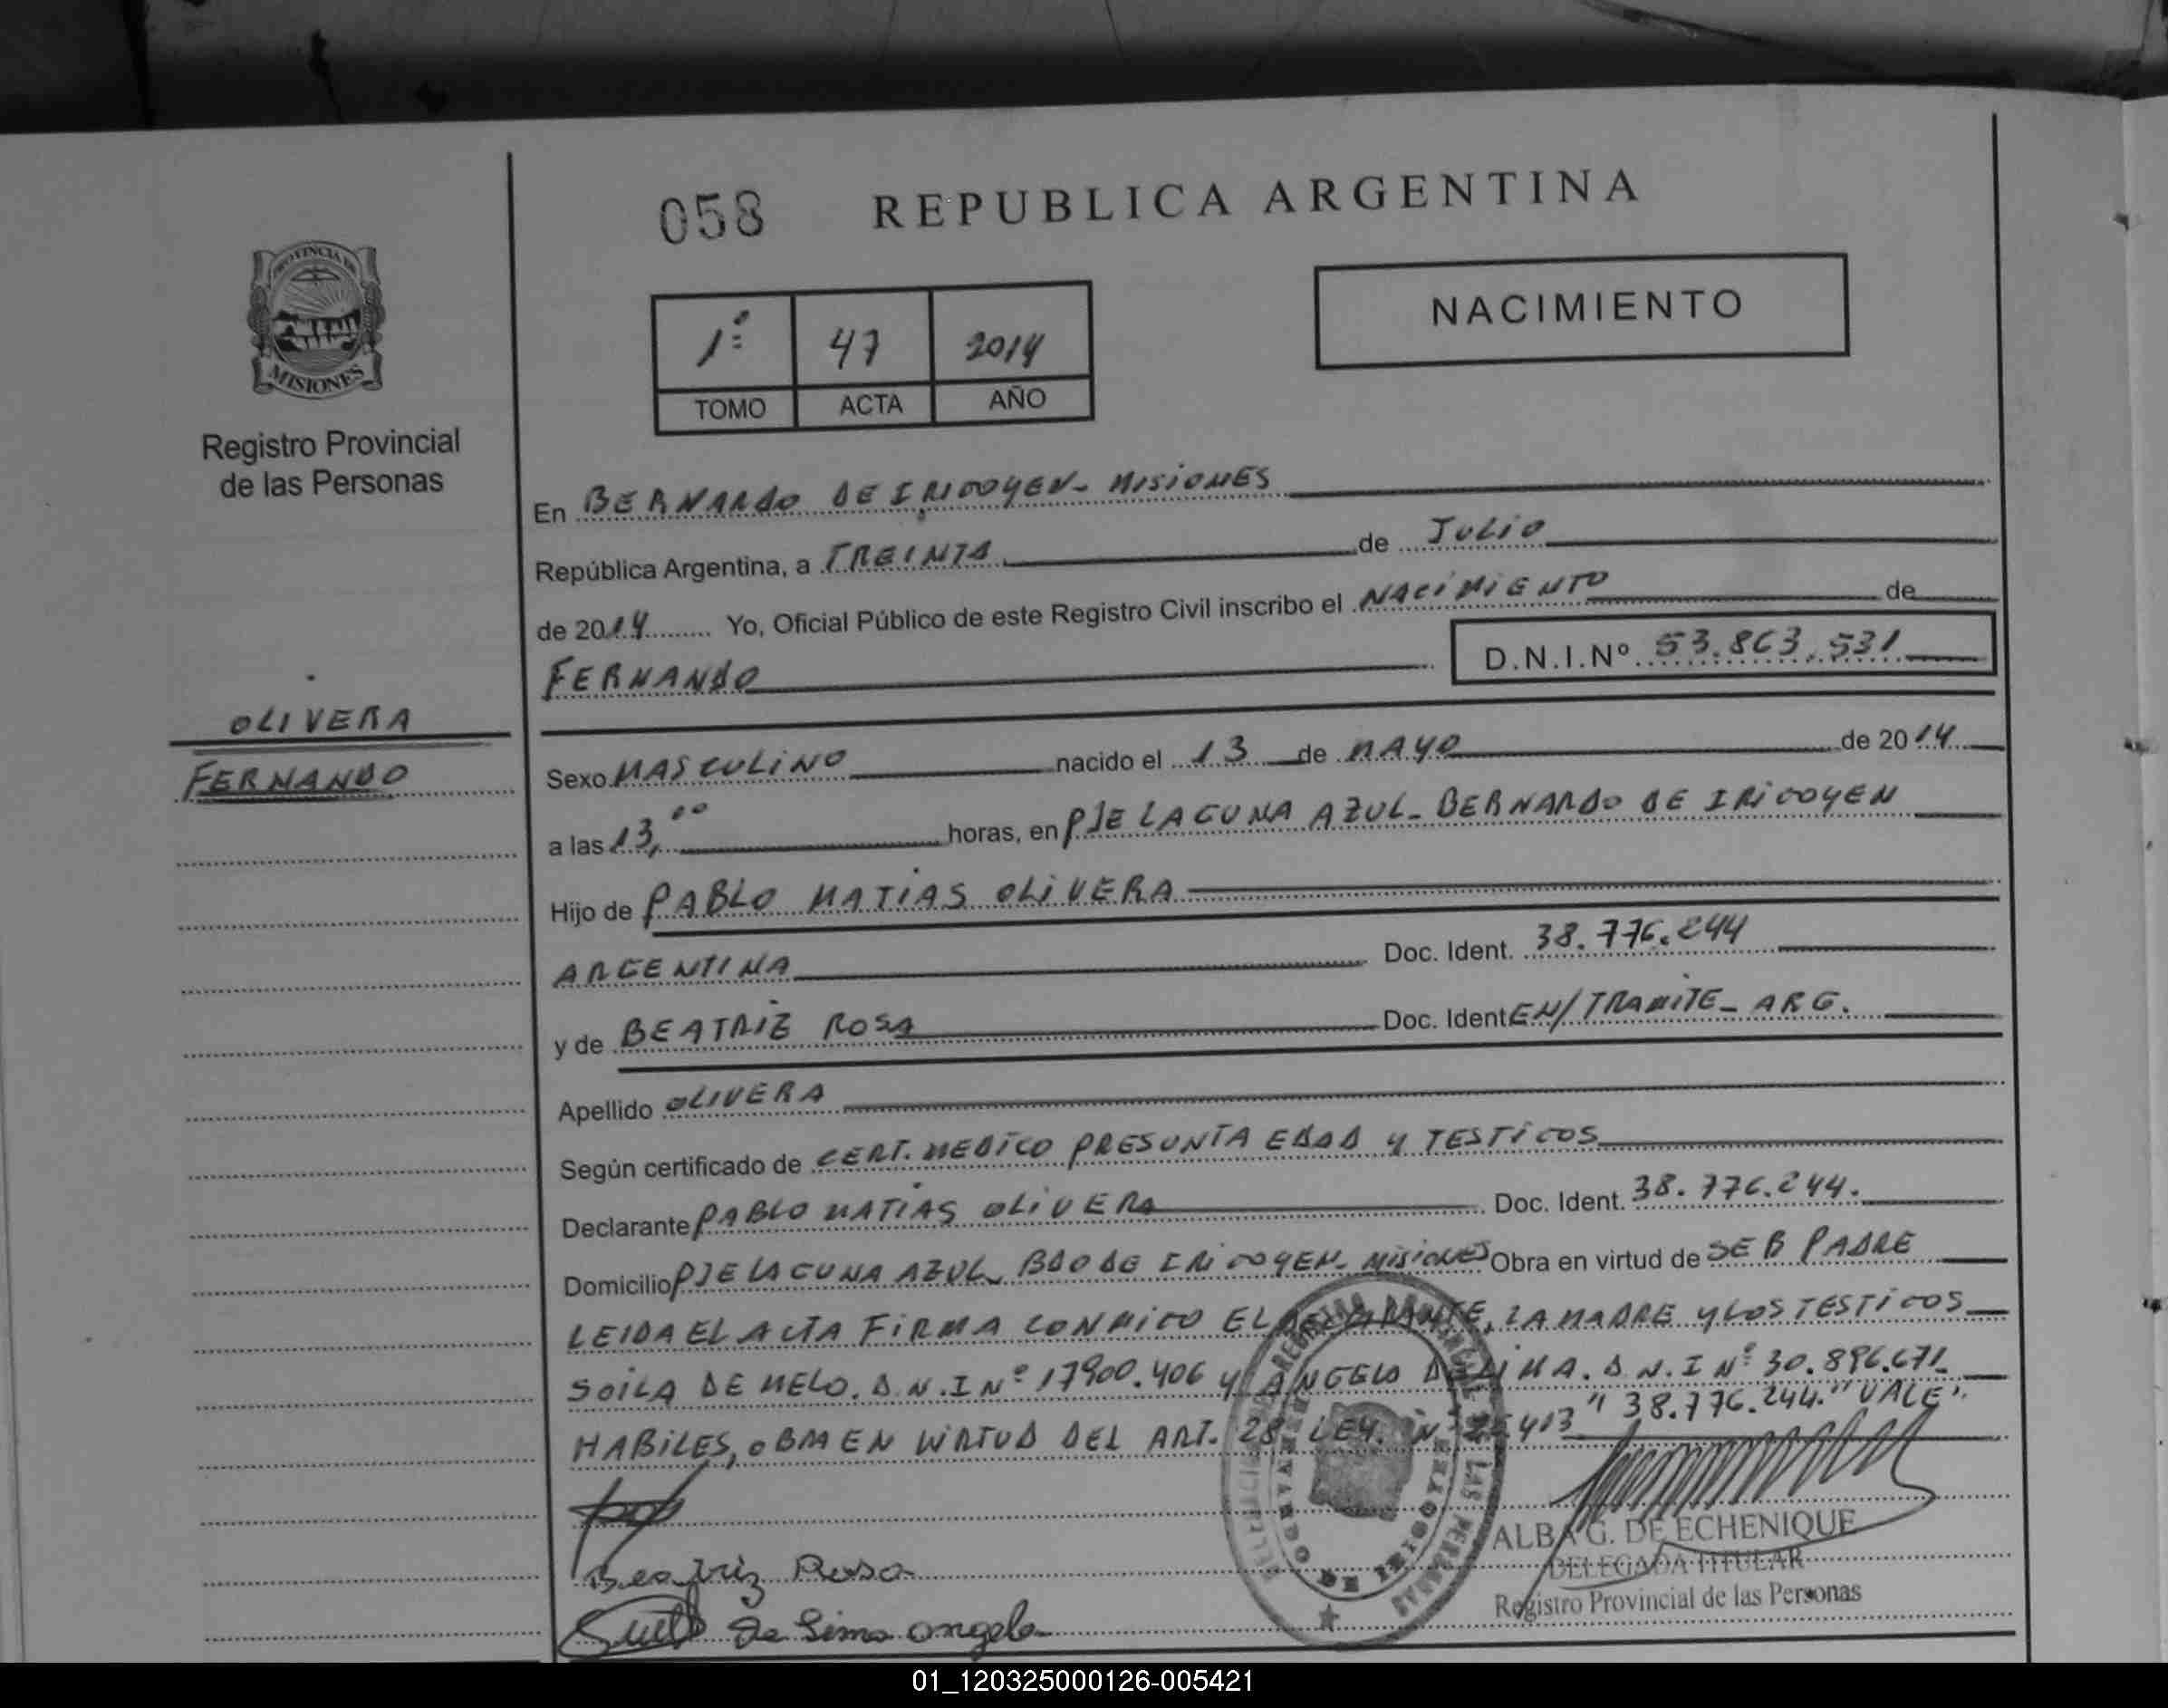 058 REPUBLICA ARGENTINA
PROVINCIA DE
MISIONES
Registro Provincial
de las Personas
NACIMIENTO
1º 47 2014
TOMO ACTA AÑO
En BERNARDO DE IRIGOYEN - MISIONES
República Argentina, a TREINTA de JULIO
de 2014 Yo, Oficial Público de este Registro Civil inscribo el NACIMIENTO de
FERNANDO D.N.I.Nº 53.863.531
OLIVERA
FERNANDO
Sexo MASCULINO nacido el 13 de MAYO de 2014
a las 13,00 horas, en PJE LAGUNA AZUL - BERNARDO DE IRIGOYEN
Hijo de PABLO MATIAS OLIVERA
ARGENTINA Doc. Ident. 38.776.244
y de BEATRIZ ROSA Doc. Ident EN/TRAMITE - ARG.
Apellido OLIVERA
Según certificado de CERT. MEDICO PRESUNTA EDAD Y TESTIGOS
Declarante PABLO MATIAS OLIVERA Doc. Ident. 38.776.244.
Domicilio PJE LAGUNA AZUL - BDO DE IRIGOYEN - MISIONES Obra en virtud de SER PADRE
LEIDA EL ACTA FIRMA CONMIGO EL DECLARANTE, LA MADRE Y LOS TESTIGOS
SOILA DE MELO. D.N.I Nº 17900.406 Y ANGELO DE LIMA. D.N.I Nº 30.896.671
HABILES, OBRA EN VIRTUD DEL ART. 28 LEY. Nº 413 "38.776.244." VALE".
Beatriz Rosa
De Lima Angelo
ALBA G. DE ECHENIQUE
DELEGADA TITULAR
Registro Provincial de las Personas
01_120325000126-005421